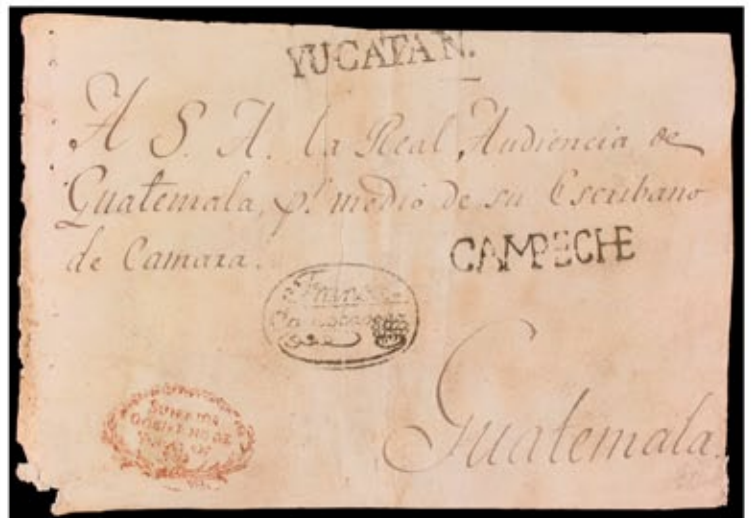 YUCATAN.
A S. A. la Real Audiencia de
Guatemala, pr. medio de su Escribano
de Camara.
CAMPECHE
Franca
Guatemala.
SUPERIOR
GOBIERNO DE